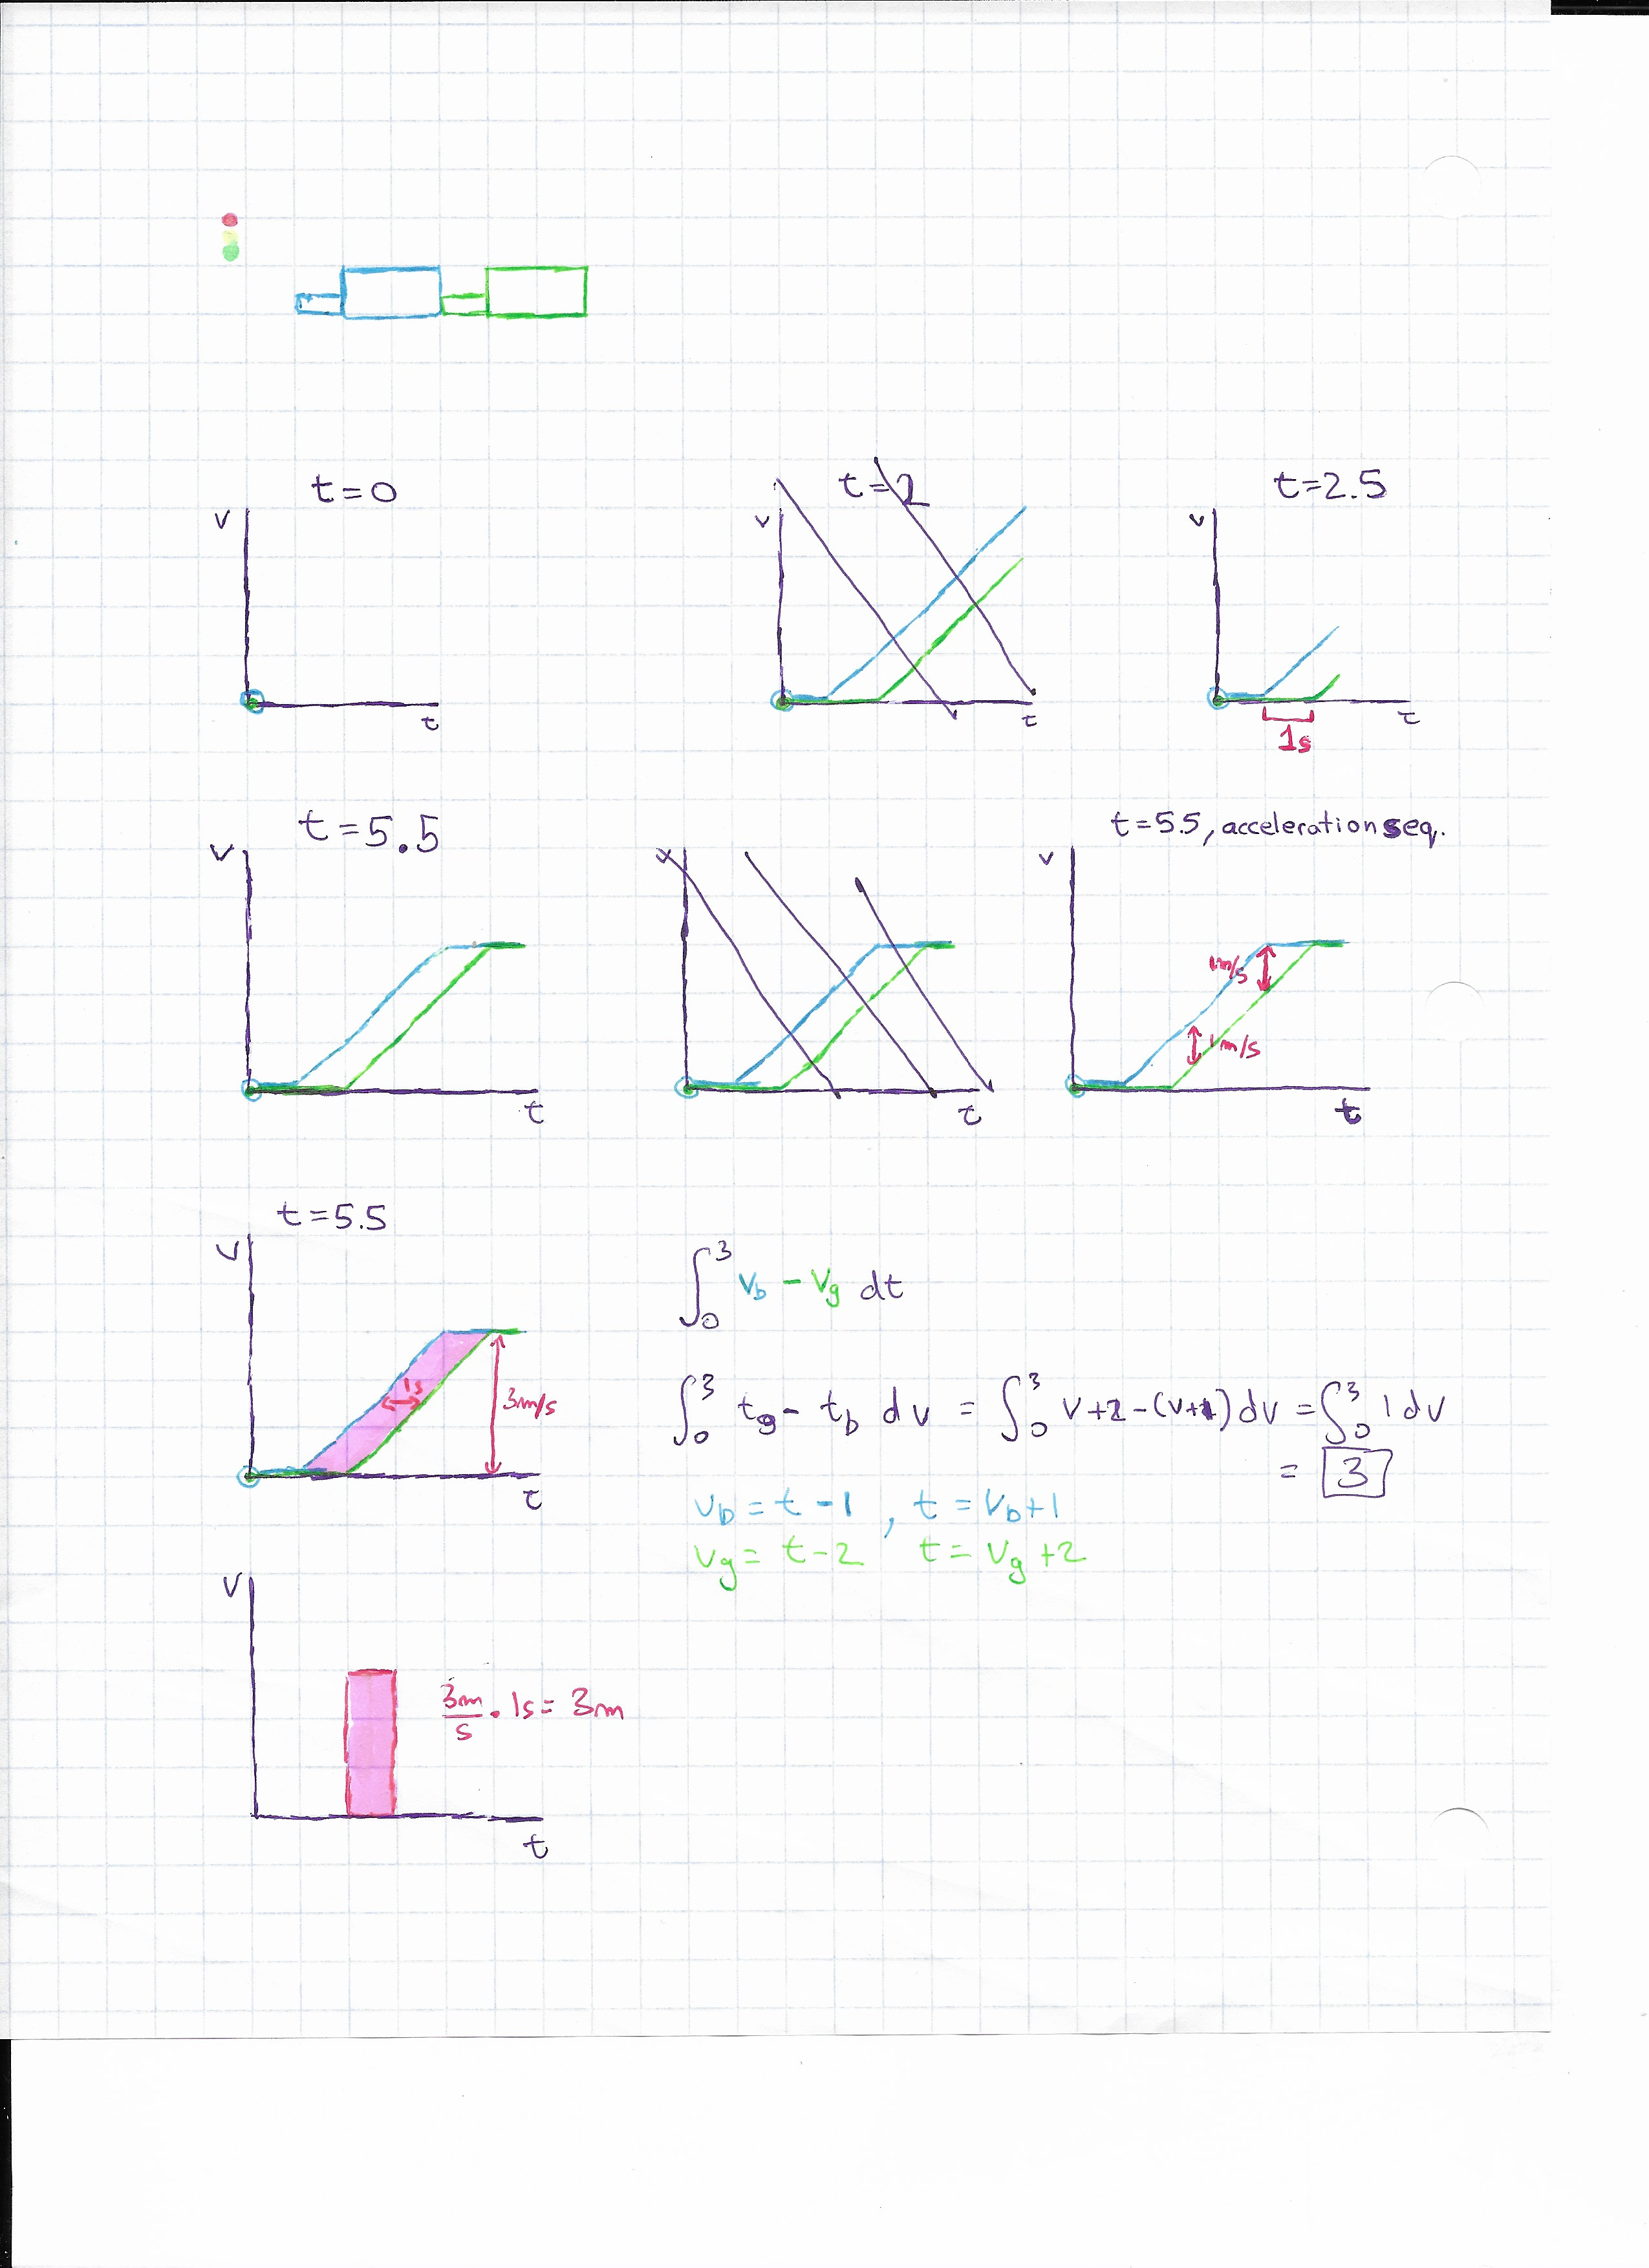 t=0
v
t
t=2
v
t
t=2.5
v
t
1s
t=5.5
v
t
v
t
t=5.5, acceleration seq.
v
1m/s
1m/s
t
t=5.5
v
1s
3m/s
t
∫₀³ v_b - v_g dt
∫₀³ t_g - t_b dv = ∫₀³ v+2-(v+1) dv = ∫₀³ 1 dv
= 3
v_b = t-1, t = v_b+1
v_g = t-2 t = v_g+2
v
3m/s · 1s = 3m
t